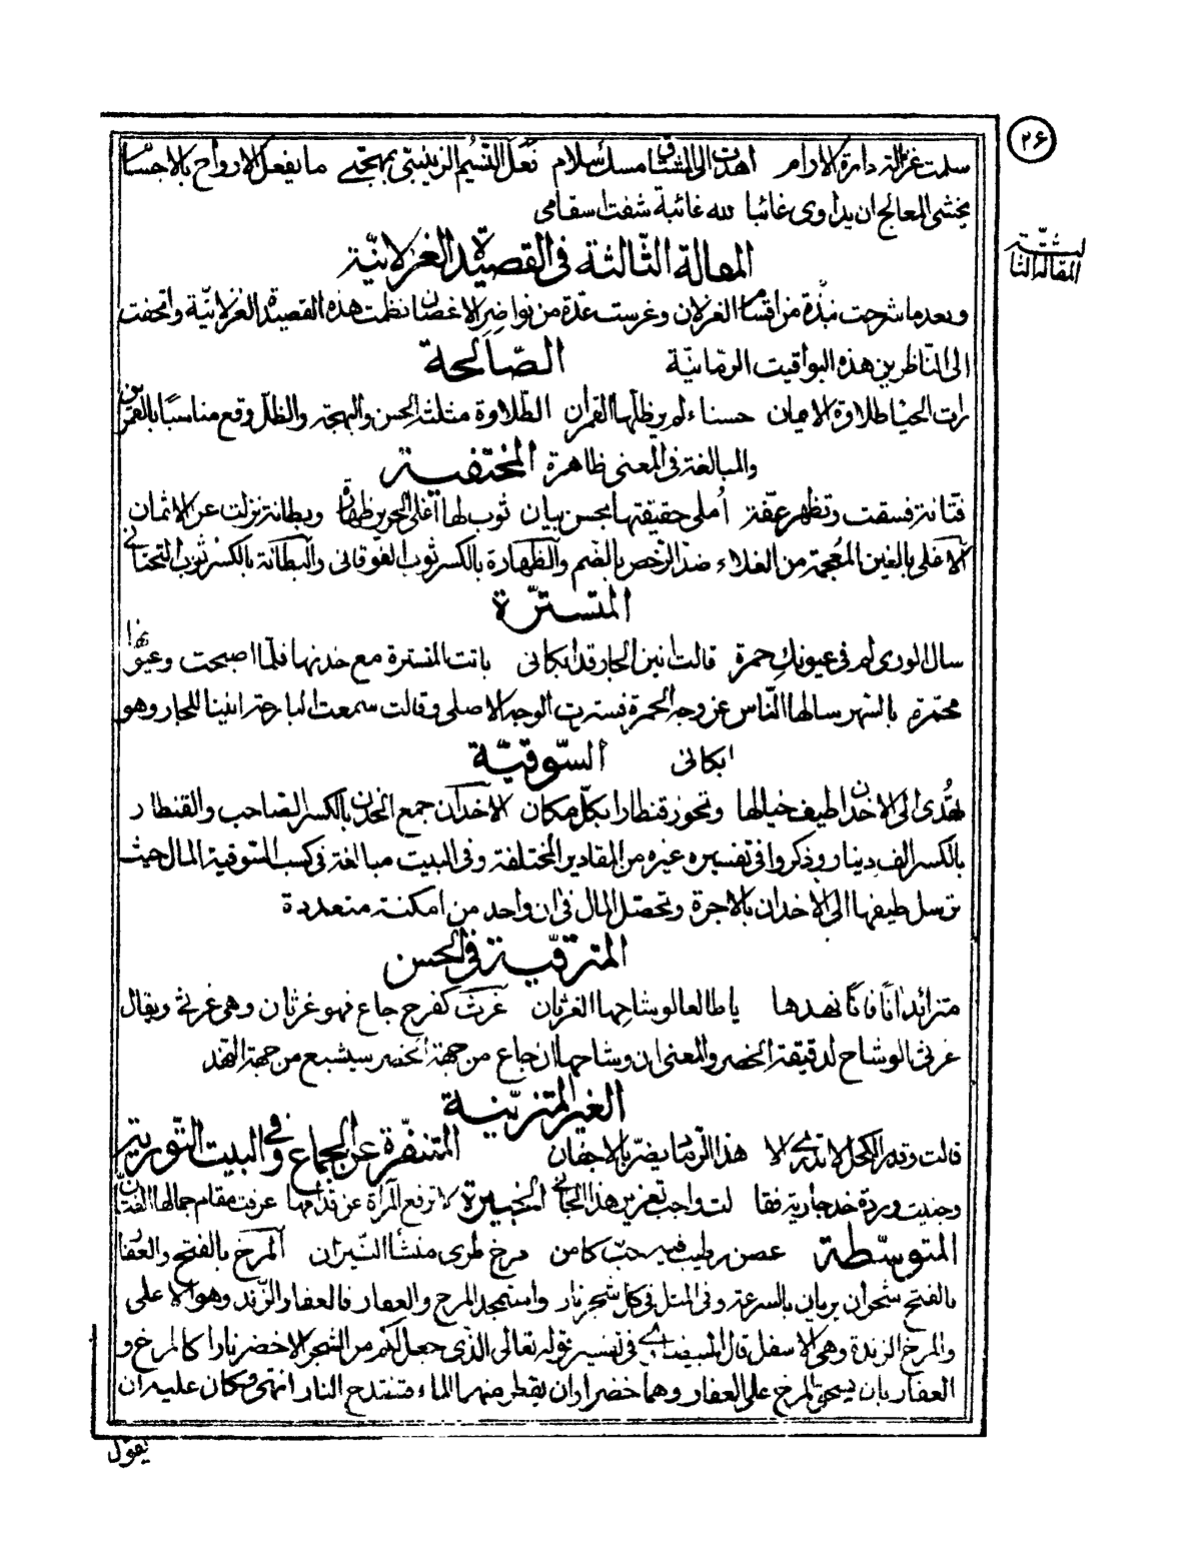 ٢٦
سلمت غزالة دارة الارام اهدت الى المشتاق مسك سلام فعل النسيم الزينبي بمهجتي ما يفعل الارواح بالاجسام
يخشى المعالج ان يداوى غائبا لله غائبة شفت اسقامى
المقالة الثّالثة فى القصيدة الغزلانيّة
المقالة الثالثة
وبعد ما شرحت نبذة من اقسام الغزلان وغرست عدّة من نواضر الاغصان نظمت هذه القصيدة الغزلانيّة واتحفت
الى النّاظرين هذه اليواقيت الرمّانيّة الصّالحة
رات الحيا طلاوة الايمان حسناء لم يرظلّها القمران الطّلاوة مثلثة الحسن والبهجة والظلّ وقع مناسبًا بالقمرين
والمبالغة فى المعنى ظاهرة المختفية
فتّانة فسقت وتظهر عفّة أملى حقيقتها بحسن بيان ثوب لها اغلى الحرير ظهارة وبطانة نزلت عن الاثمان
الاغلى بالغين المعجمة من الغلاء ضدّ الرّخص بالضم والظهارة بالكسر ثوب الفوقانى والبطانة بالكسر ثوب التحتانى
المتستّرة
سال الورى لم فى عيونك حمرة قالت انين الجار قد ابكانى باتت المتسترة مع خدنها فلمّا اصبحت وعيونها
محمّرة بالسهر سالها النّاس عن وجه الحمرة فسترت الوجه الاصلى وقالت سمعت البارحة انينا للجار وهو
ابكانى السّوقيّة
تهدى الى الاخدان طيف خيالها وتحوز قنطارا بكلّ مكان الاخدان جمع الخدن بالكسر الصّاحب والقنطار
بالكسر الف دينار وذكروا فى تفسيره غيره من المقادير المختلفة وفى البيت مبالغة فى كسب السّوقية المال حيث
ترسل طيفها الى الاخدان بالاجرة وتحصّل المال فى ان واحد من امكنة متعددة
المترقيّة فى الحسن
متزائد انًا فانًا نهدها يا طالعا لوشاحها الغرثان غرث كفرح جاع فهو غرثان وهى غرثى ويقال
غرثى الوشاح لدقيقة الخصر والمعنى ان وشاحها ان جاع من جهة الخصر سيشبع من جهة النّهد
الغير المتزيّنة
قالت وقدم الكحل لا تدنى الا هذا الرّمَد يضرّ بالاجفان المتنفّرة عن الجماع وفى البيت التّورية
وجنيت وردة خد جارية فقالت واجب تعزير هذا الجانى الخبيرة لا ترفع المرأة عن قدّامها عرفت مقام جمالها الفتّان
المتوسّطة غصن رطيب فيه حبّ كامن مرخ طرى منشأ النّيران المرخ بالفتح والعفار
بالفتح شجران يريان بالسرعة وفى المثل فى كل شجر نار واستمجد المرخ والعفار فالعفار الزّند وهو الاعلى
والمرخ الزندة وهى الاسفل قال البيضاوى فى تفسير قوله تعالى الّذى جعل لكم من الشجر الاخضر نارا كالمرخ و
العفار بان يسحق المرخ على العفار وهما خضراوان يقطر منهما الماء فتنقدح النار انتهى وكان عليه ان
يقول